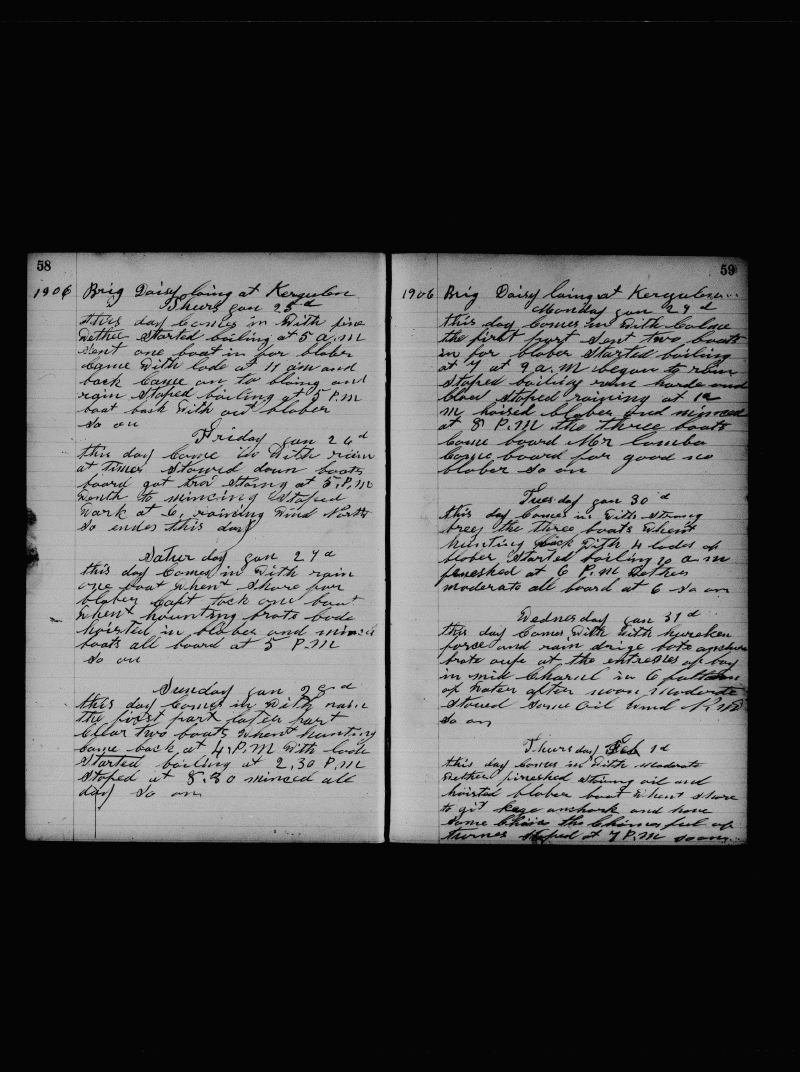 58
1906 Brig Daisy laing at Kergulen
Thurs Jan 25d
this day Comes in With fine
Wether Started boiling at 5 a.m
Sent one boat in for blober
Came With lode at 11 am and
back Came on to and
rain Stoped boiling at 5 P.M
boat back With out blober
So on
Friday Jan 26d
this day Come in With rain
at times Stowed down boats
board got at 5, P, M
to mincing Stoped
Wark at 6, raining Wind North
So endes this day
Sather day Jan 27d
this day Comes in With rain
one boat Whent Shore for
blober Capt tock one boat
Whent hounting brote lode
hoisted in blober and minced
boats all board at 5 P.M
So on
Sunday Jan 28d
this day Comes in With rain
the first part later part
Clear two boats Whent hunting
Came back at 4, P.M With lode
Started boiling at 2,30 P.M
Stoped at 8.30 minced all
day So on
59
1906 Brig Daisy laing at Kergulen
Monday Jan 29d
this day Comes in With Calme
the first part Sent two boats
in for blober Started boiling
at 7 at 9 a.m began to rain
Stoped boiling rain harde and
blow Stoped raining at 12
M hoised blober and minced
at 8 P.M the three boats
Come board Mr Lomba
Come board for good no
blober So on
Tuesday Jan 30d
this day Comes in With Strong
breez the three boats Whent
hunting back With 4 lodes of
blober Started boiling 10 a m
fineshed at 6 P.M Wether
moderate all board at 6 So on
Wednesday Jan 31d
this day Comes With With hureken
forse and rain bote
brote oufe at the of bay
in mid Chanel in 6
of Water after noon Moderate
Stowed Some Oil Wind N.W
So on
Thursday Feb 1d
this day Comes in With Moderate
Wether fineshed Stowing oil and
hoisted blober boat Whent Shore
to git kege anchork and hove
Some the
Stoped at 7 P.M So on